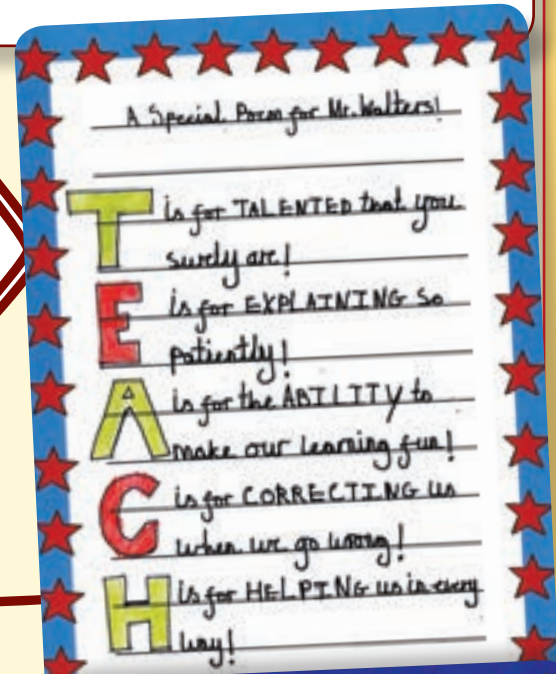 A Special Poem for Mr. Walters!
T is for TALENTED that you
surely are!
E is for EXPLAINING so
patiently!
A is for the ABILITY to
make our learning fun!
C is for CORRECTING us
when we go wrong!
H is for HELPING us in every
way!